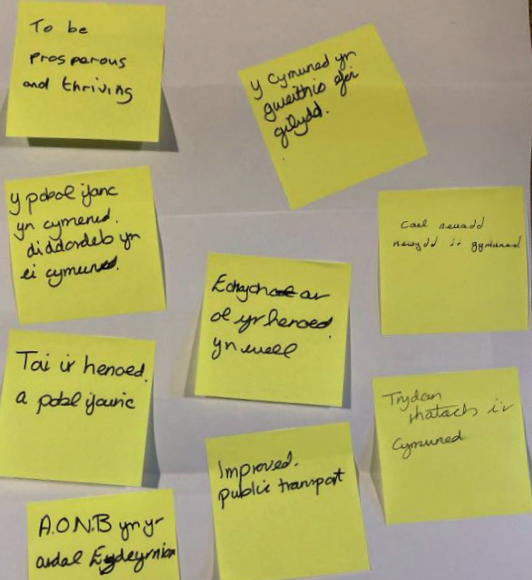 To be
prosperous
and thriving
y Cymuned yn
gweithio efo'i
gilydd.
y pobol ifanc
yn cymeryd.
diddordeb yn
ei cymuned.
Cael neuadd
newydd i'r gymuned
Edrych ar
ol yr henoed
yn well
Tai ir henoed.
a pobl ifanc
Trydan
rhatach i'r
Cymuned
Improved.
public transport
A.O.N.B yn yr
ardal Edeyrnion